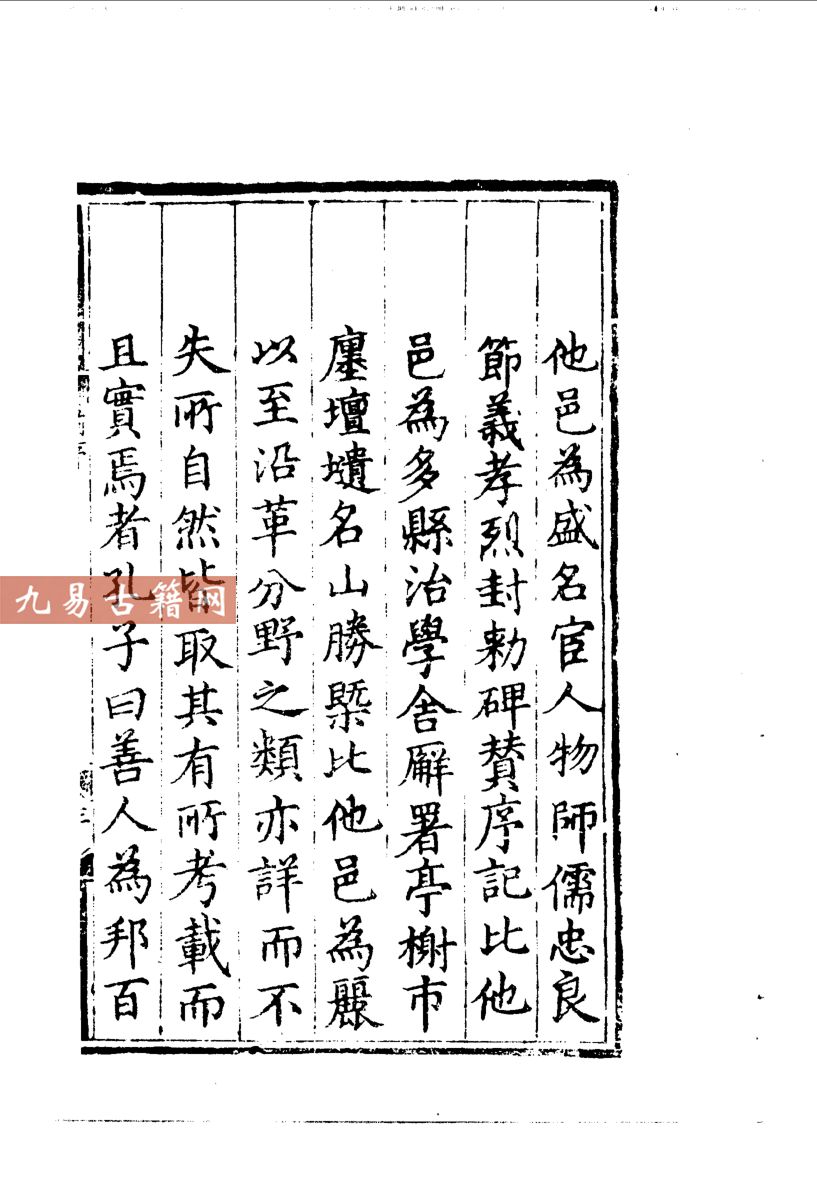 他邑為盛名宦人物師儒忠良
節義孝烈封勅碑贊序記比他
邑為多縣治學舍廨署亭榭市
廛壇壝名山勝槩比他邑為麗
以至沿革分野之類亦詳而不
失所自然皆取其有所考載而
且實焉者孔子曰善人為邦百
九易古籍网